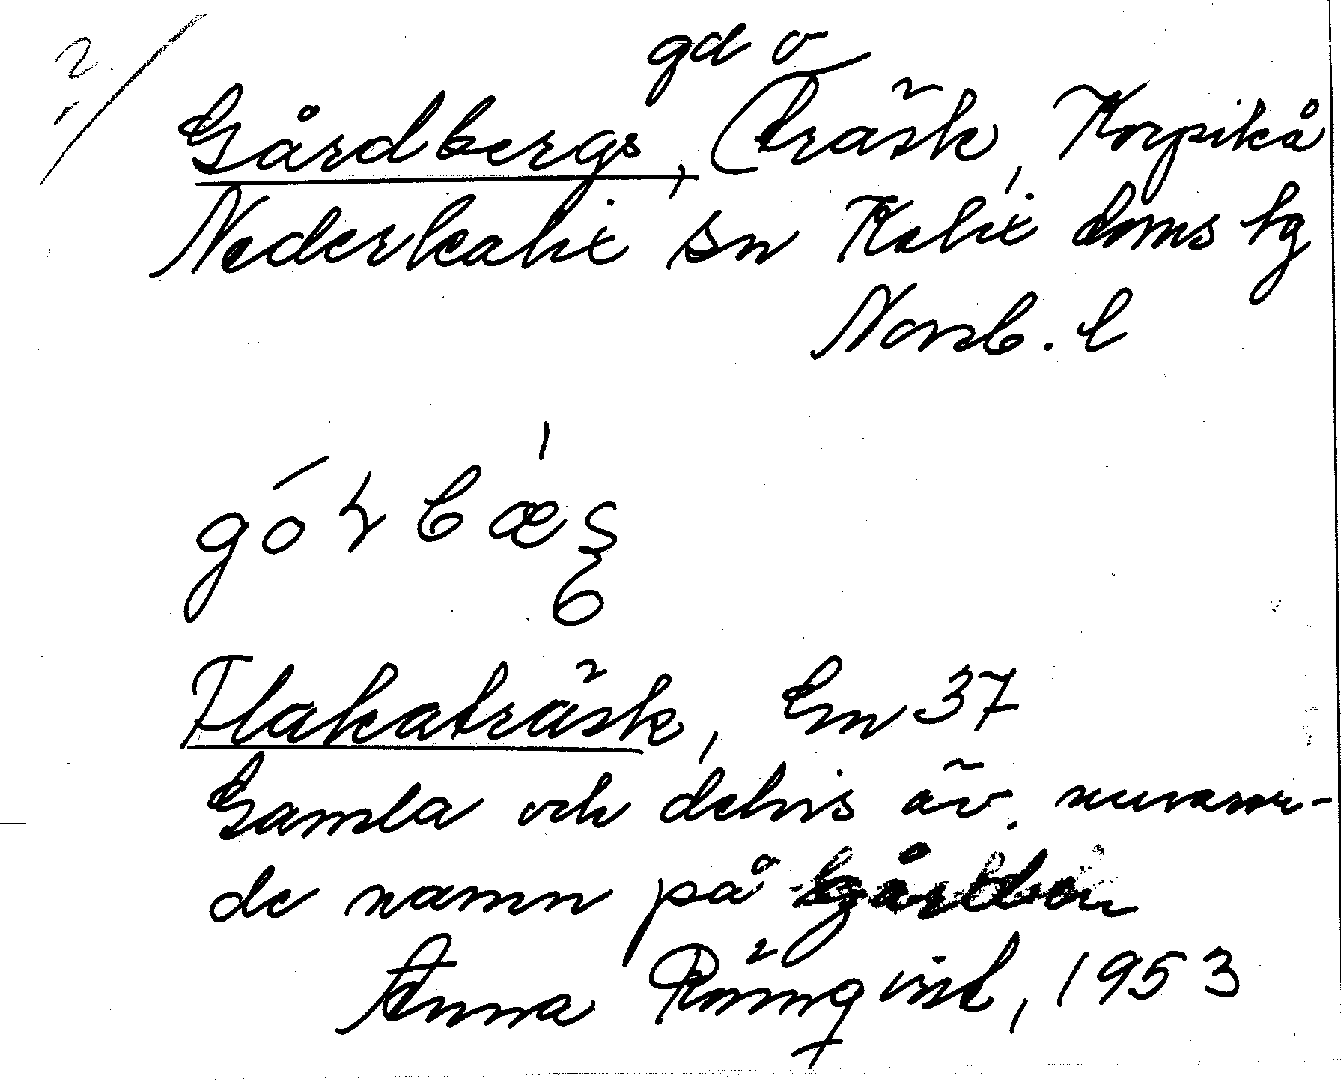 2/
gd o
Gårdbergs, (träsk, Korpikå
Nederkalix sn Kalix doms tg
Norrb. l
Flakaträsk, Em 37
Gamla och delvis äv. nuvaran-
de namn på gården
Anna Rönnqvist, 1953